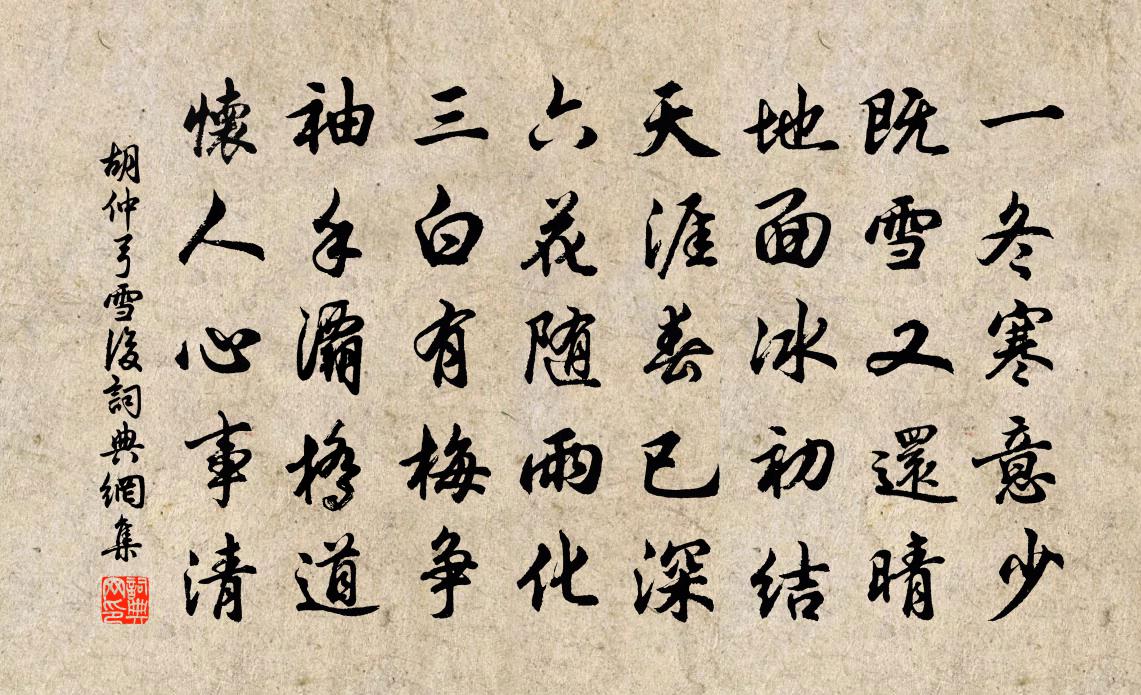 一冬寒意少
既雪又還晴
地面冰初結
天涯春已深
六花随雨化
三白有梅争
袖手灞橋道
懷人心事清
胡仲弓雪後詞典網集
詞典網印